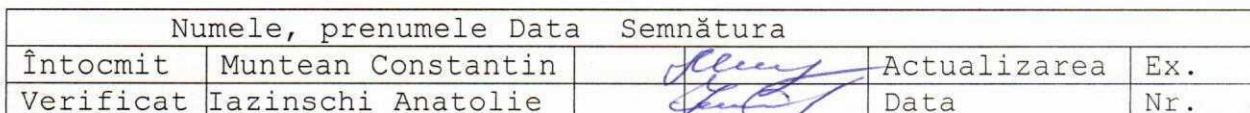 Numele, prenumele Data Semnătura
Întocmit Muntean Constantin Actualizarea Ex.
Verificat Iazinschi Anatolie Data Nr.